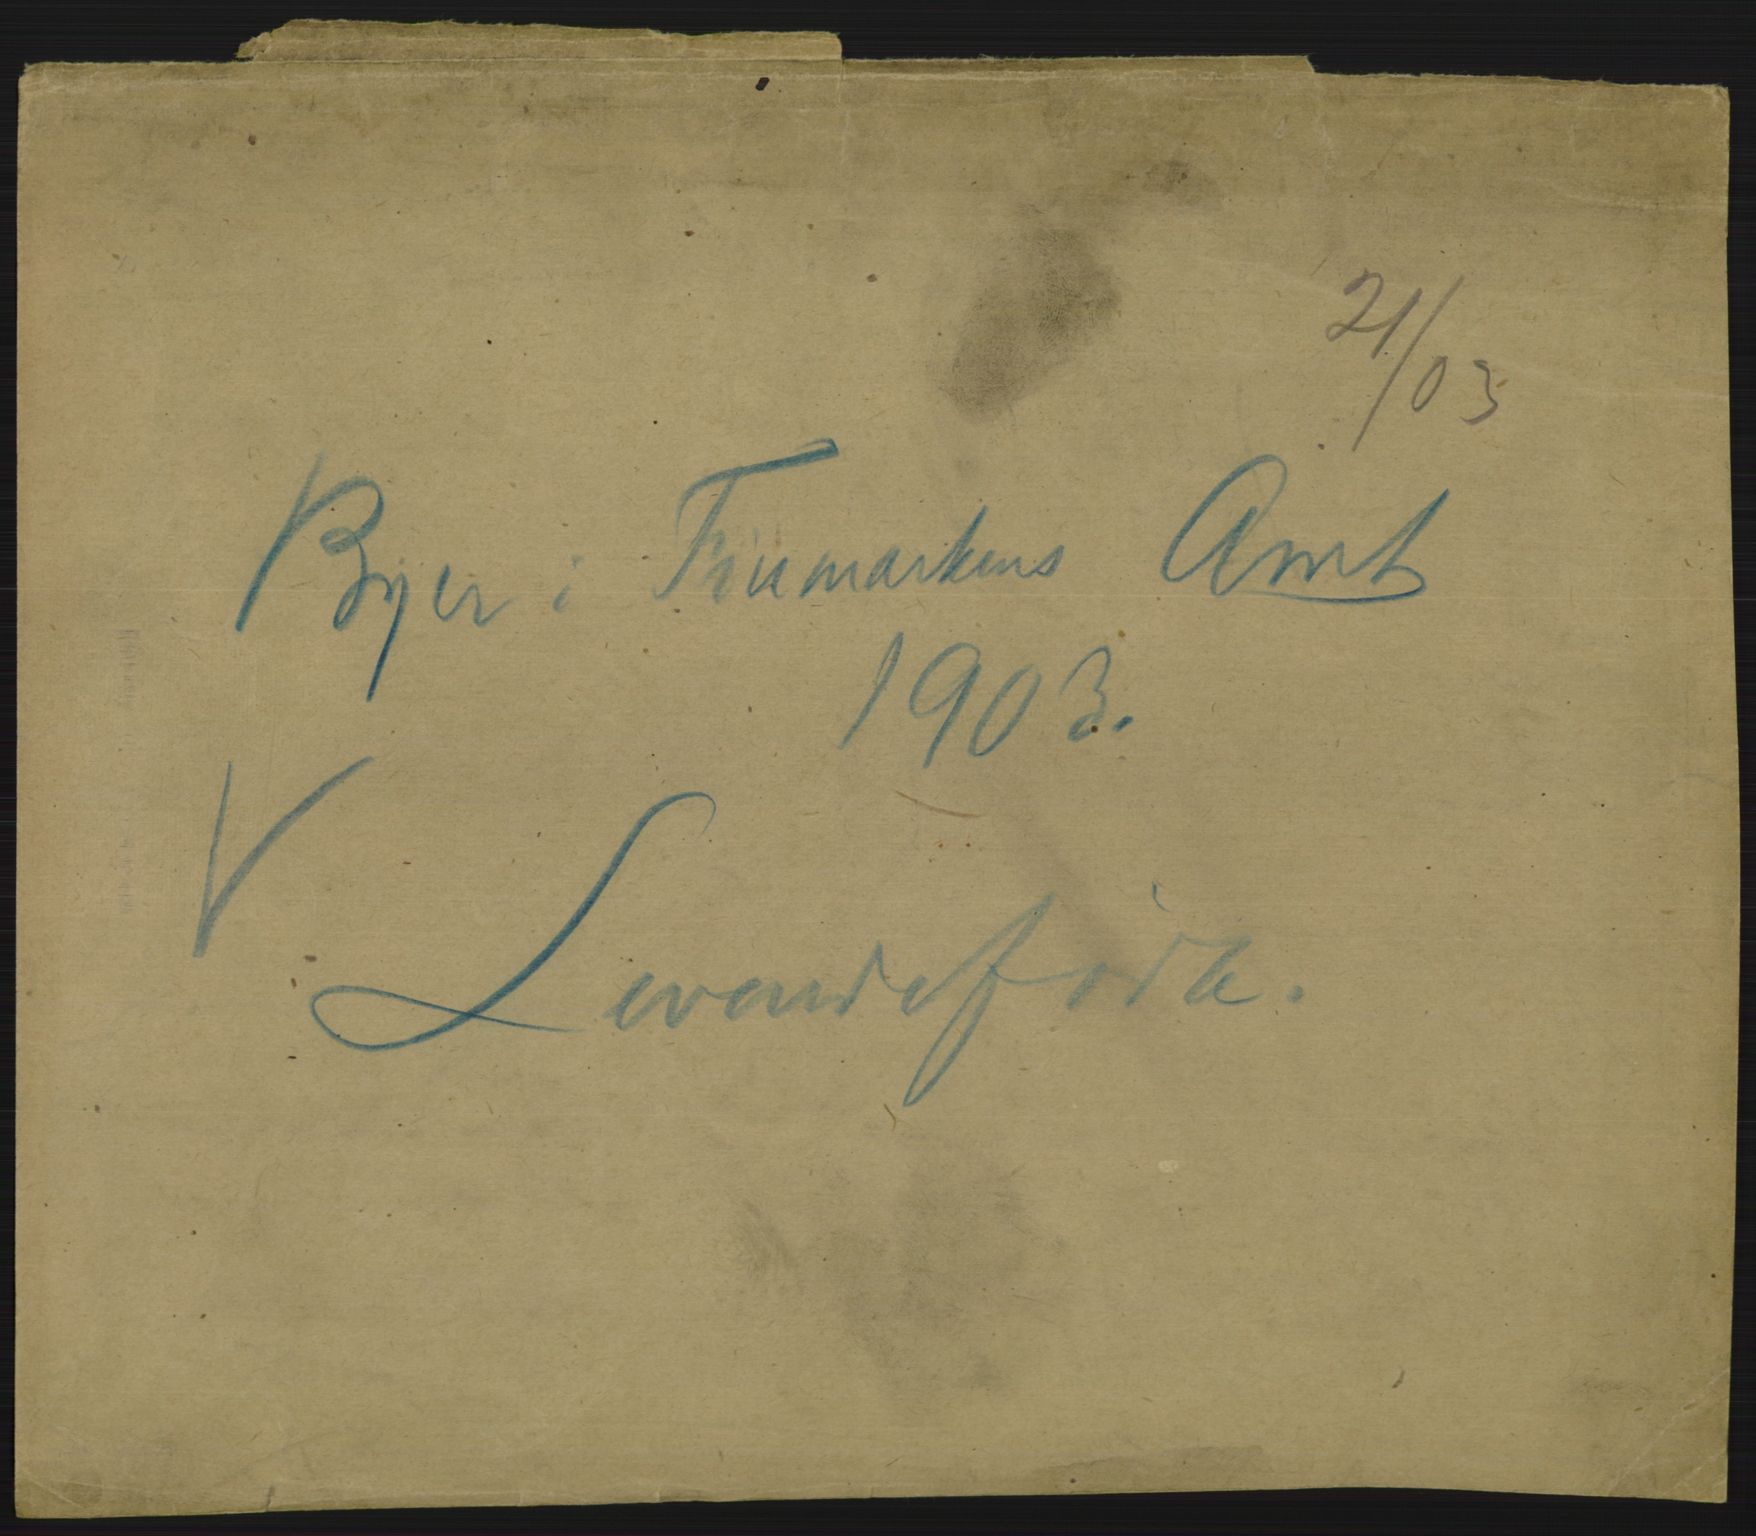 21/03
Byer i Finmarkens Amt
1903.
V
Levendefödte.